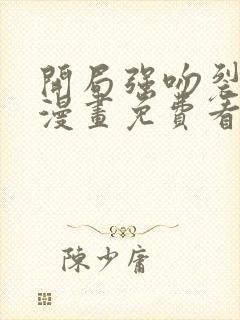 開局強吻裂
漫畫免費看
陳少庸